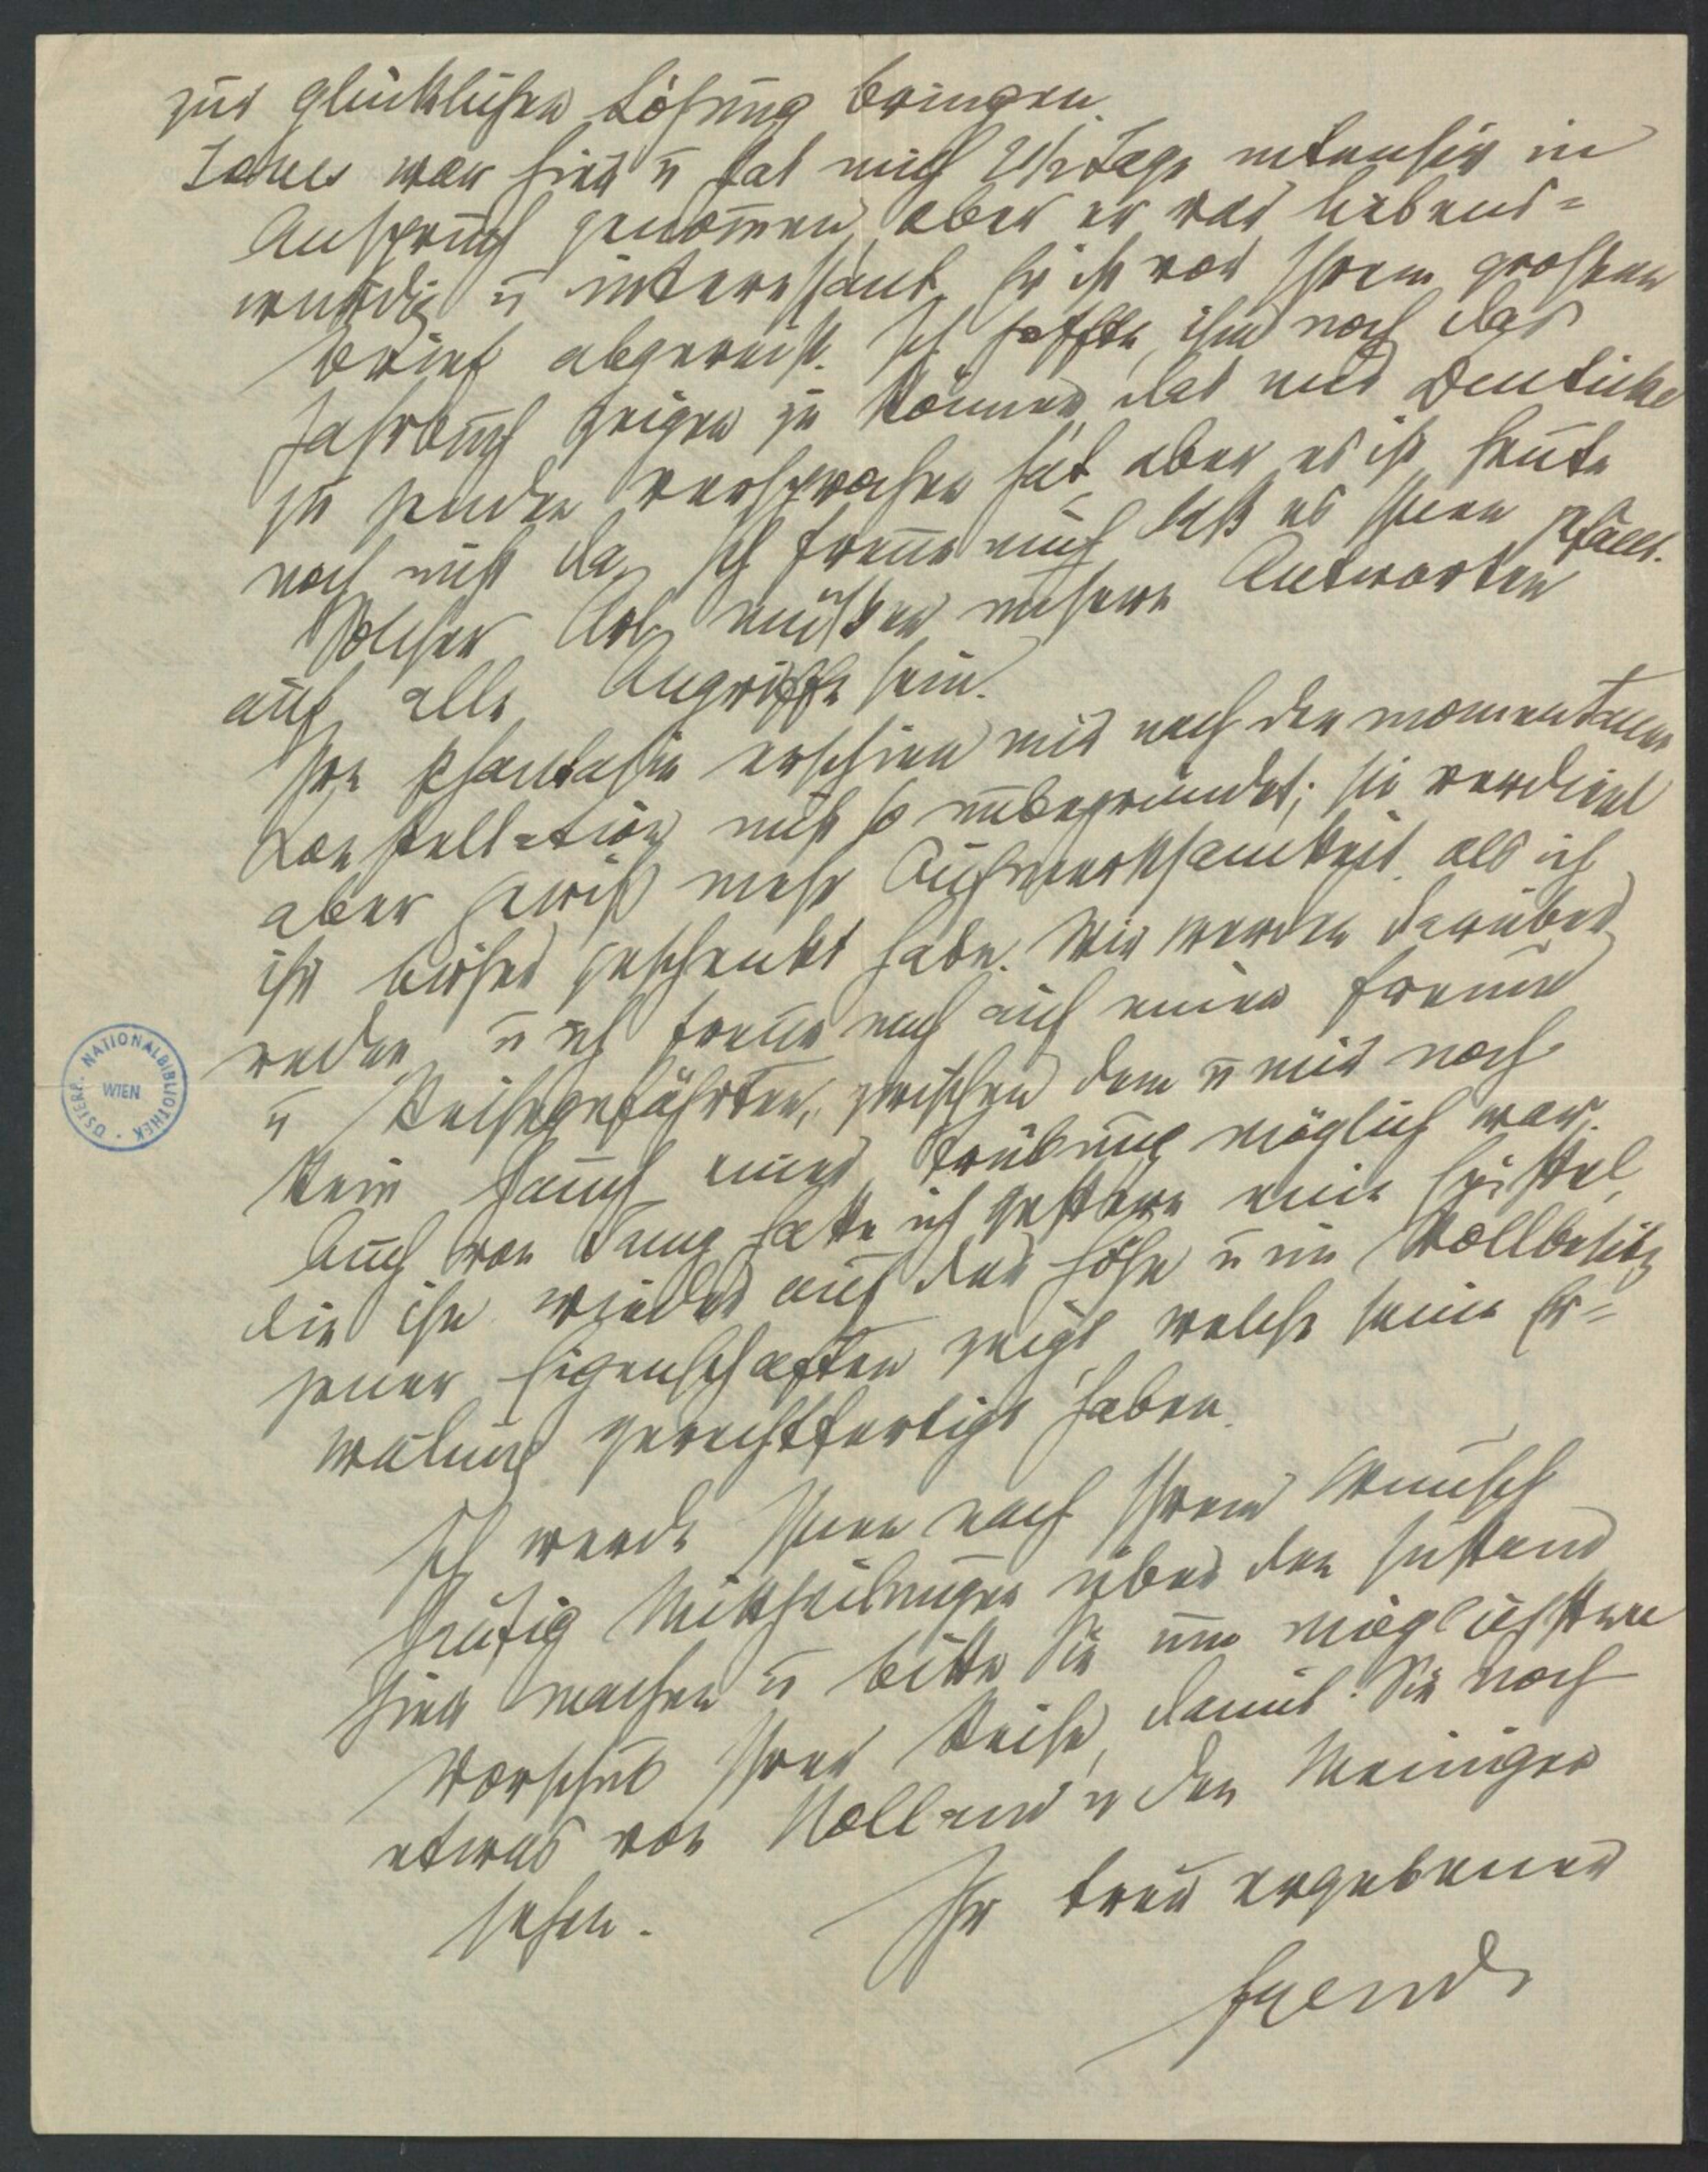 zur glücklichen Lösung bringen.
Jones war hier u hat mich 2 1/2 Tage intensiv in
Anspruch genommen, aber er war liebens=
würdig u interessant. Er ist vor Ihrem großen
Brief abgereist. Ich hoffte, ihm noch das
Jahrbuch zeigen zu können, das mir Deuticke
zu senden versprochen hat, aber es ist heute
noch nicht da. Ich freue mich, daß es Ihnen gefällt.
Solcher Art müßten unsere Antworten
auf alle Angriffe sein.
Ihre Phantasie erschien mir nach der momentanen
Konstellation nicht so unbegründet; sie verdient
aber gewiß mehr Aufmerksamkeit, als ich
ihr bisher geschenkt habe. Wir werden darüber
reden, u ich freue mich auf einen Freund
u Reisegefährten, zwischen dem u mir noch
kein Hauch einer Trübung möglich war.
Auch von Jung hatte ich gestern eine Epistel,
die ihn wieder auf der Höhe u im Vollbesitz
jener Eigenschaften zeigt, welche seine Er=
wälung gerechtfertigt haben.
Ich werde Ihnen nach Ihrem Wunsch
häufig Mittheilungen über den Zustand
hier machen u bitte Sie um möglichsten
Vorschub Ihrer Reise, damit Sie noch
etwas von Holland u den Meinigen
sehen.
Ihr treu ergebener
Freud
ÖSTERR. NATIONALBIBLIOTHEK
WIEN